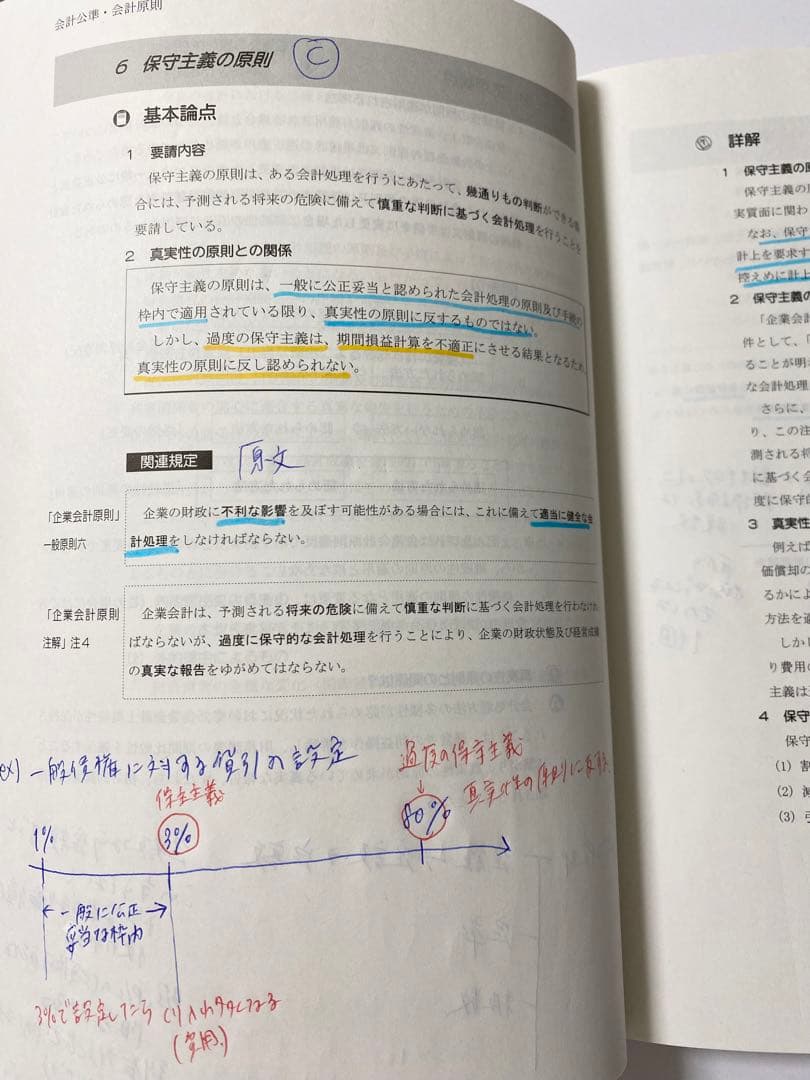 会計公準・会計原則
6 保守主義の原則 C
基本論点
1 要請内容
保守主義の原則は、ある会計処理を行うにあたって、幾通りもの判断ができる場
合には、予測される将来の危険に備えて慎重な判断に基づく会計処理を行うことを
要請している。
2 真実性の原則との関係
保守主義の原則は、一般に公正妥当と認められた会計処理の原則及び手続の
枠内で適用されている限り、真実性の原則に反するものではない。
しかし、過度の保守主義は、期間損益計算を不適正にさせる結果となるため、
真実性の原則に反し認められない。
関連規定 原文
「企業会計原則」
一般原則六
企業の財政に不利な影響を及ぼす可能性がある場合には、これに備えて適当に健全な会
計処理をしなければならない。
「企業会計原則
注解」注4
企業会計は、予測される将来の危険に備えて慎重な判断に基づく会計処理を行わなけれ
ばならないが、過度に保守的な会計処理を行うことにより、企業の財政状態及び経営成績
の真実な報告をゆがめてはならない。
ex) 一般債権に対する貸引の設定
保主主義
過度の保守主義
真実性の原則に
1% 3% 80%
一般に公正
妥当な枠内
3%で設定したら くり入れ
(費用)
詳解
1 保守主義の原
保守主義の
実質面に関わ
なお、保守
計上を要求す
控えめに計上
2 保守主義の
「企業会計
件として、「
ることが明
な会計処理
さらに、
り、この注
測される将
に基づく会
度に保守的
3 真実性
例えば
価償却の
るかによ
方法を適
しか
り費用の
主義は
4 保守
保守
(1) 割
(2) 減
(3) 引